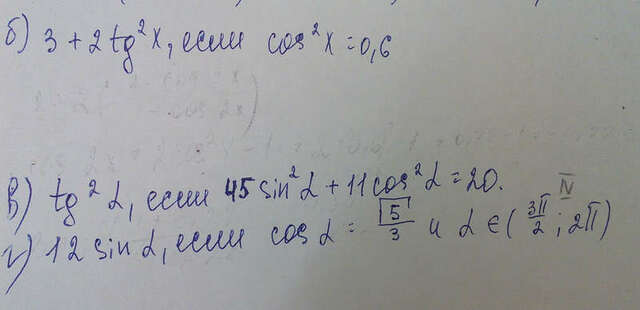 б) 3 + 2 tg²x, если cos²x = 0,6
в) tg²α, если 45 sin²α + 11 cos²α = 20.
IV
г) 12 sin α, если cos α = √5/3 и α ∈ (3π/2; 2π)